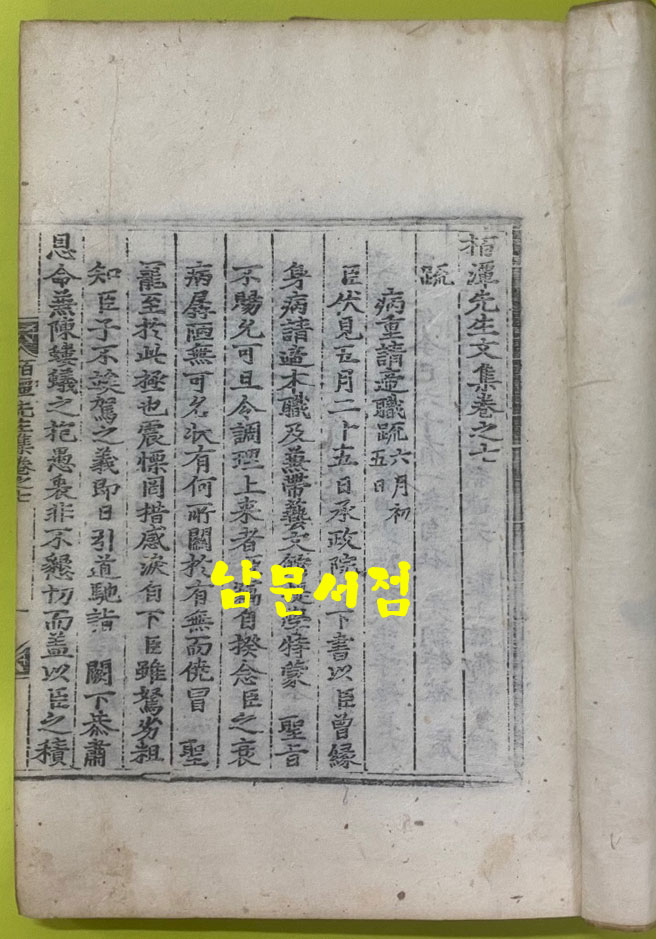 栢潭先生文集卷之七
疏
病重請遞職疏六月初五日
臣伏見五月二十五日承政院 下書以臣曾緣
身病請遞本職及兼帶藝文館 學特蒙 聖旨
不賜兊可且令調理上來者 竊自揆念臣之衰
病孱陋無可名狀有何所關於有無而僥冒 聖
寵至於此極也震慄罔措感淚自下臣雖駑劣粗
知臣子不俟駕之義即日引道馳詣 闕下恭肅
恩命兼陳螻蟻之抱愚衷非不懇切而盖以臣之積
栢潭先生集卷之七
남문서점